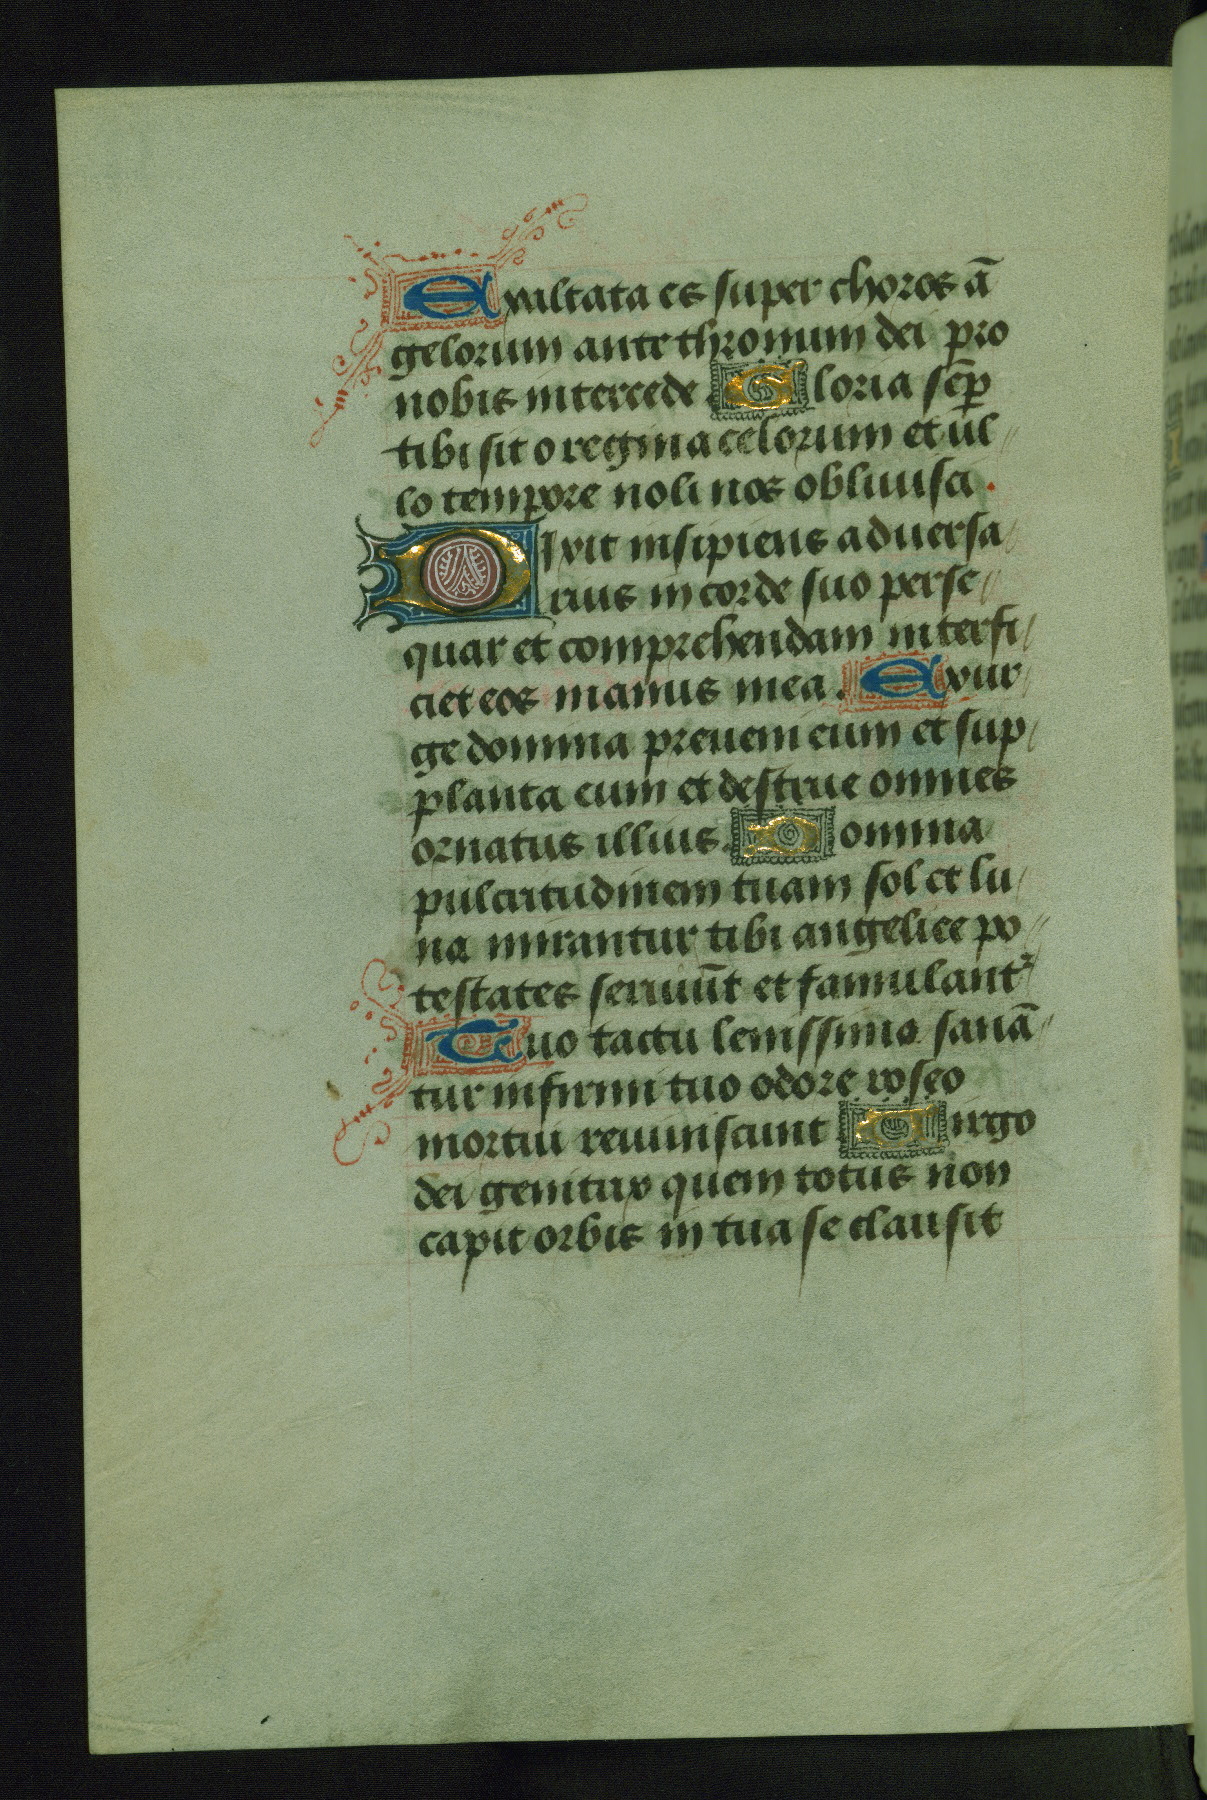 Exaltata es super choros ā
gelorum ante thronum dei pro
nobis intercede Gloria sēp
tibi sit o regina celorum et ul
lo tempore noli nos obliuisci .
Dixit insipiens aduersa
rius in corde suo perse
quar et comprehendam interfi
ciet eos manus mea . Exur
ge domina preueni eum et sup
planta eum et destrue omnes
ornatus illius . Domina
pulcritudinem tuam sol et lu
na mirantur tibi angelice po
testates seruiūt et famulant᷑
Tuo tactu lenissimo sanā
tur infirmi tuo odore roseo
mortui reuiuiscunt Virgo
dei genitrix quem totus non
capit orbis in tua se clausit